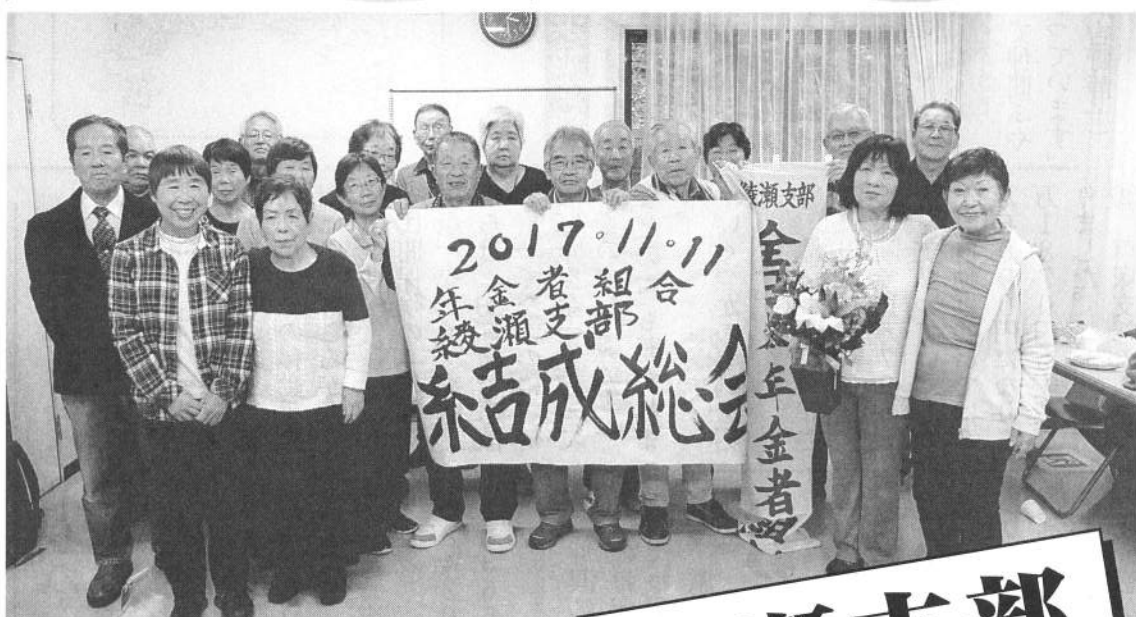 2017.11.11
年金者組合
綾瀬支部
結成総会
綾瀬支部
全日本年金者組
支部